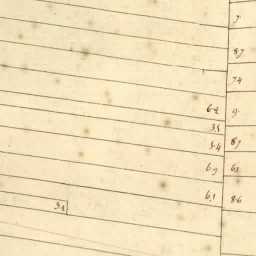 7
87
74
62 9
35
54 87
69 63
61 86
51